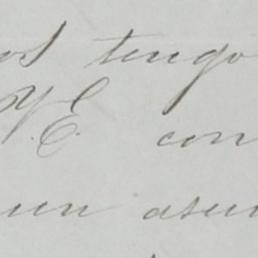 os tengo
V. E. con
un asun